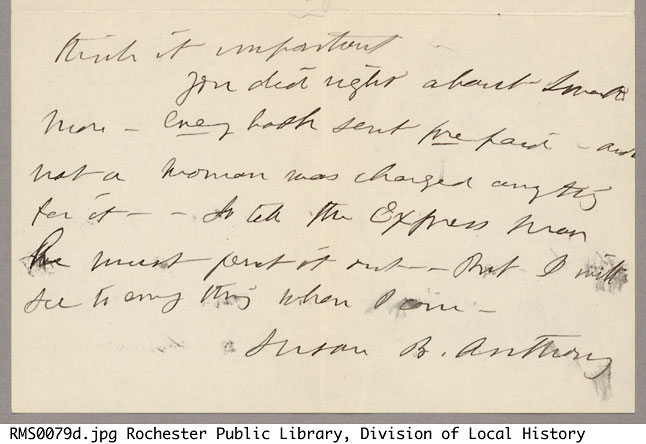 think it important
You did right about
more – every book sent prepaid – and
not a woman was charged any thing
for it – – So tell the Express man
he must ferret it out – – But I will
see to every thing when I come –
Susan B. Anthony
RMS0079d.jpg Rochester Public Library, Division of Local History